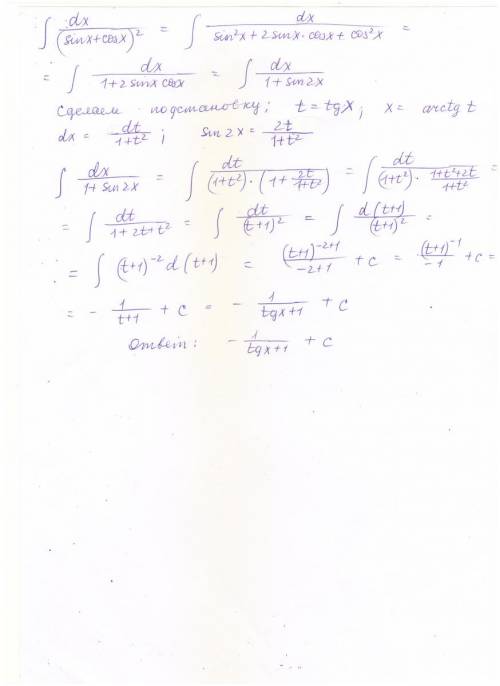 ∫ dx/(sinx+cosx)² = ∫ dx/(sin²x + 2sinx·cosx + cos²x) =
= ∫ dx/(1+2sinx cosx) = ∫ dx/(1+sin2x)
Сделаем подстановку; t = tgx; x = arctg t
dx = dt/(1+t²); sin2x = 2t/(1+t²)
∫ dx/(1+sin2x) = ∫ dt/((1+t²)·(1+2t/(1+t²))) = ∫ dt/((1+t²)·(1+t²+2t)/(1+t²)) =
= ∫ dt/(1+2t+t²) = ∫ dt/(t+1)² = ∫ d(t+1)/(t+1)² =
= ∫ (t+1)⁻² d(t+1) = (t+1)⁻²⁺¹/(-2+1) + c = (t+1)⁻¹/(-1) + c =
= - 1/(t+1) + c = - 1/(tgx+1) + c
Ответ: - 1/(tgx+1) + c